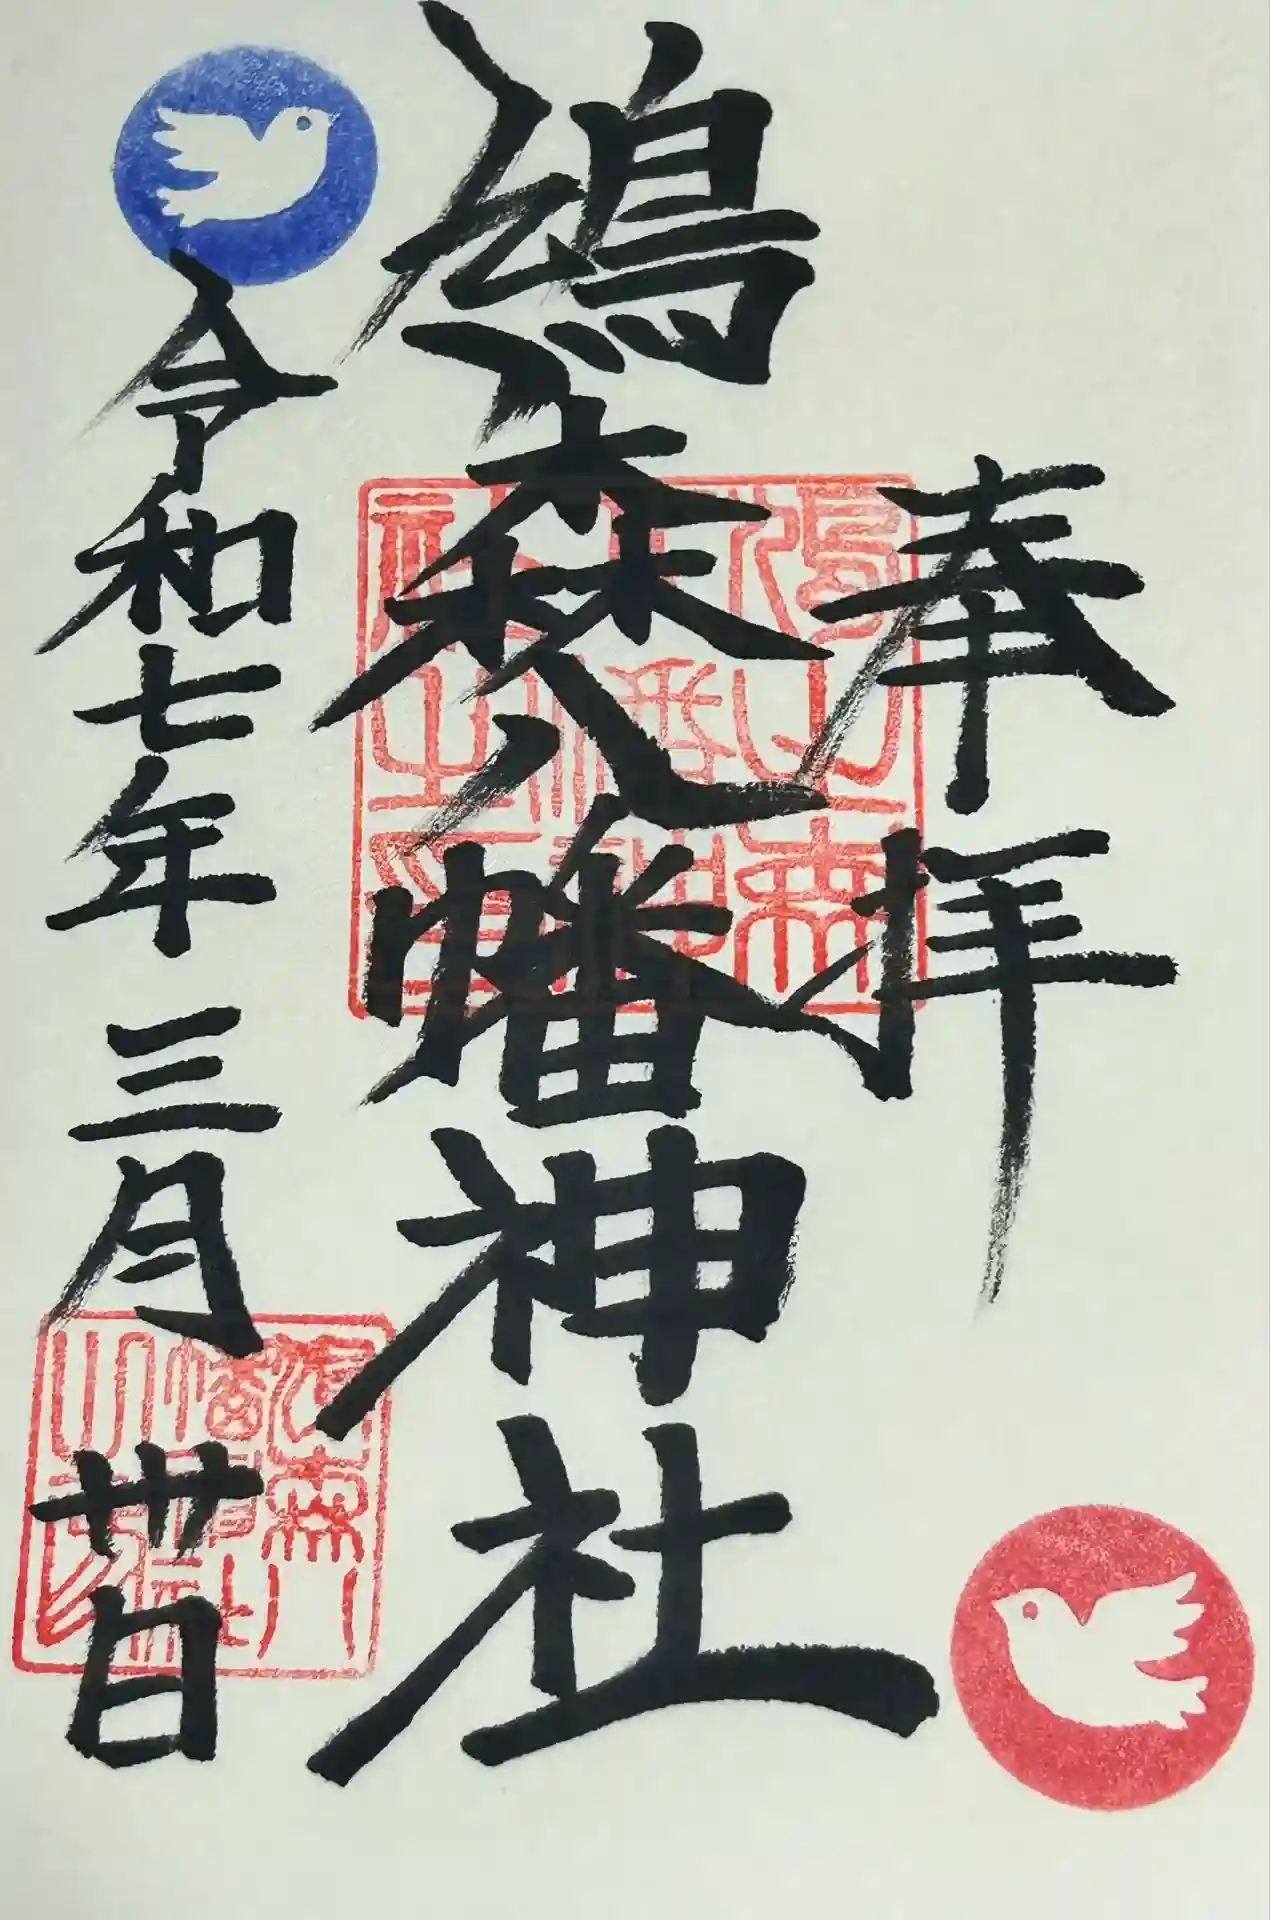 奉拝
鳩森八幡神社
令和七年 三月 卅日